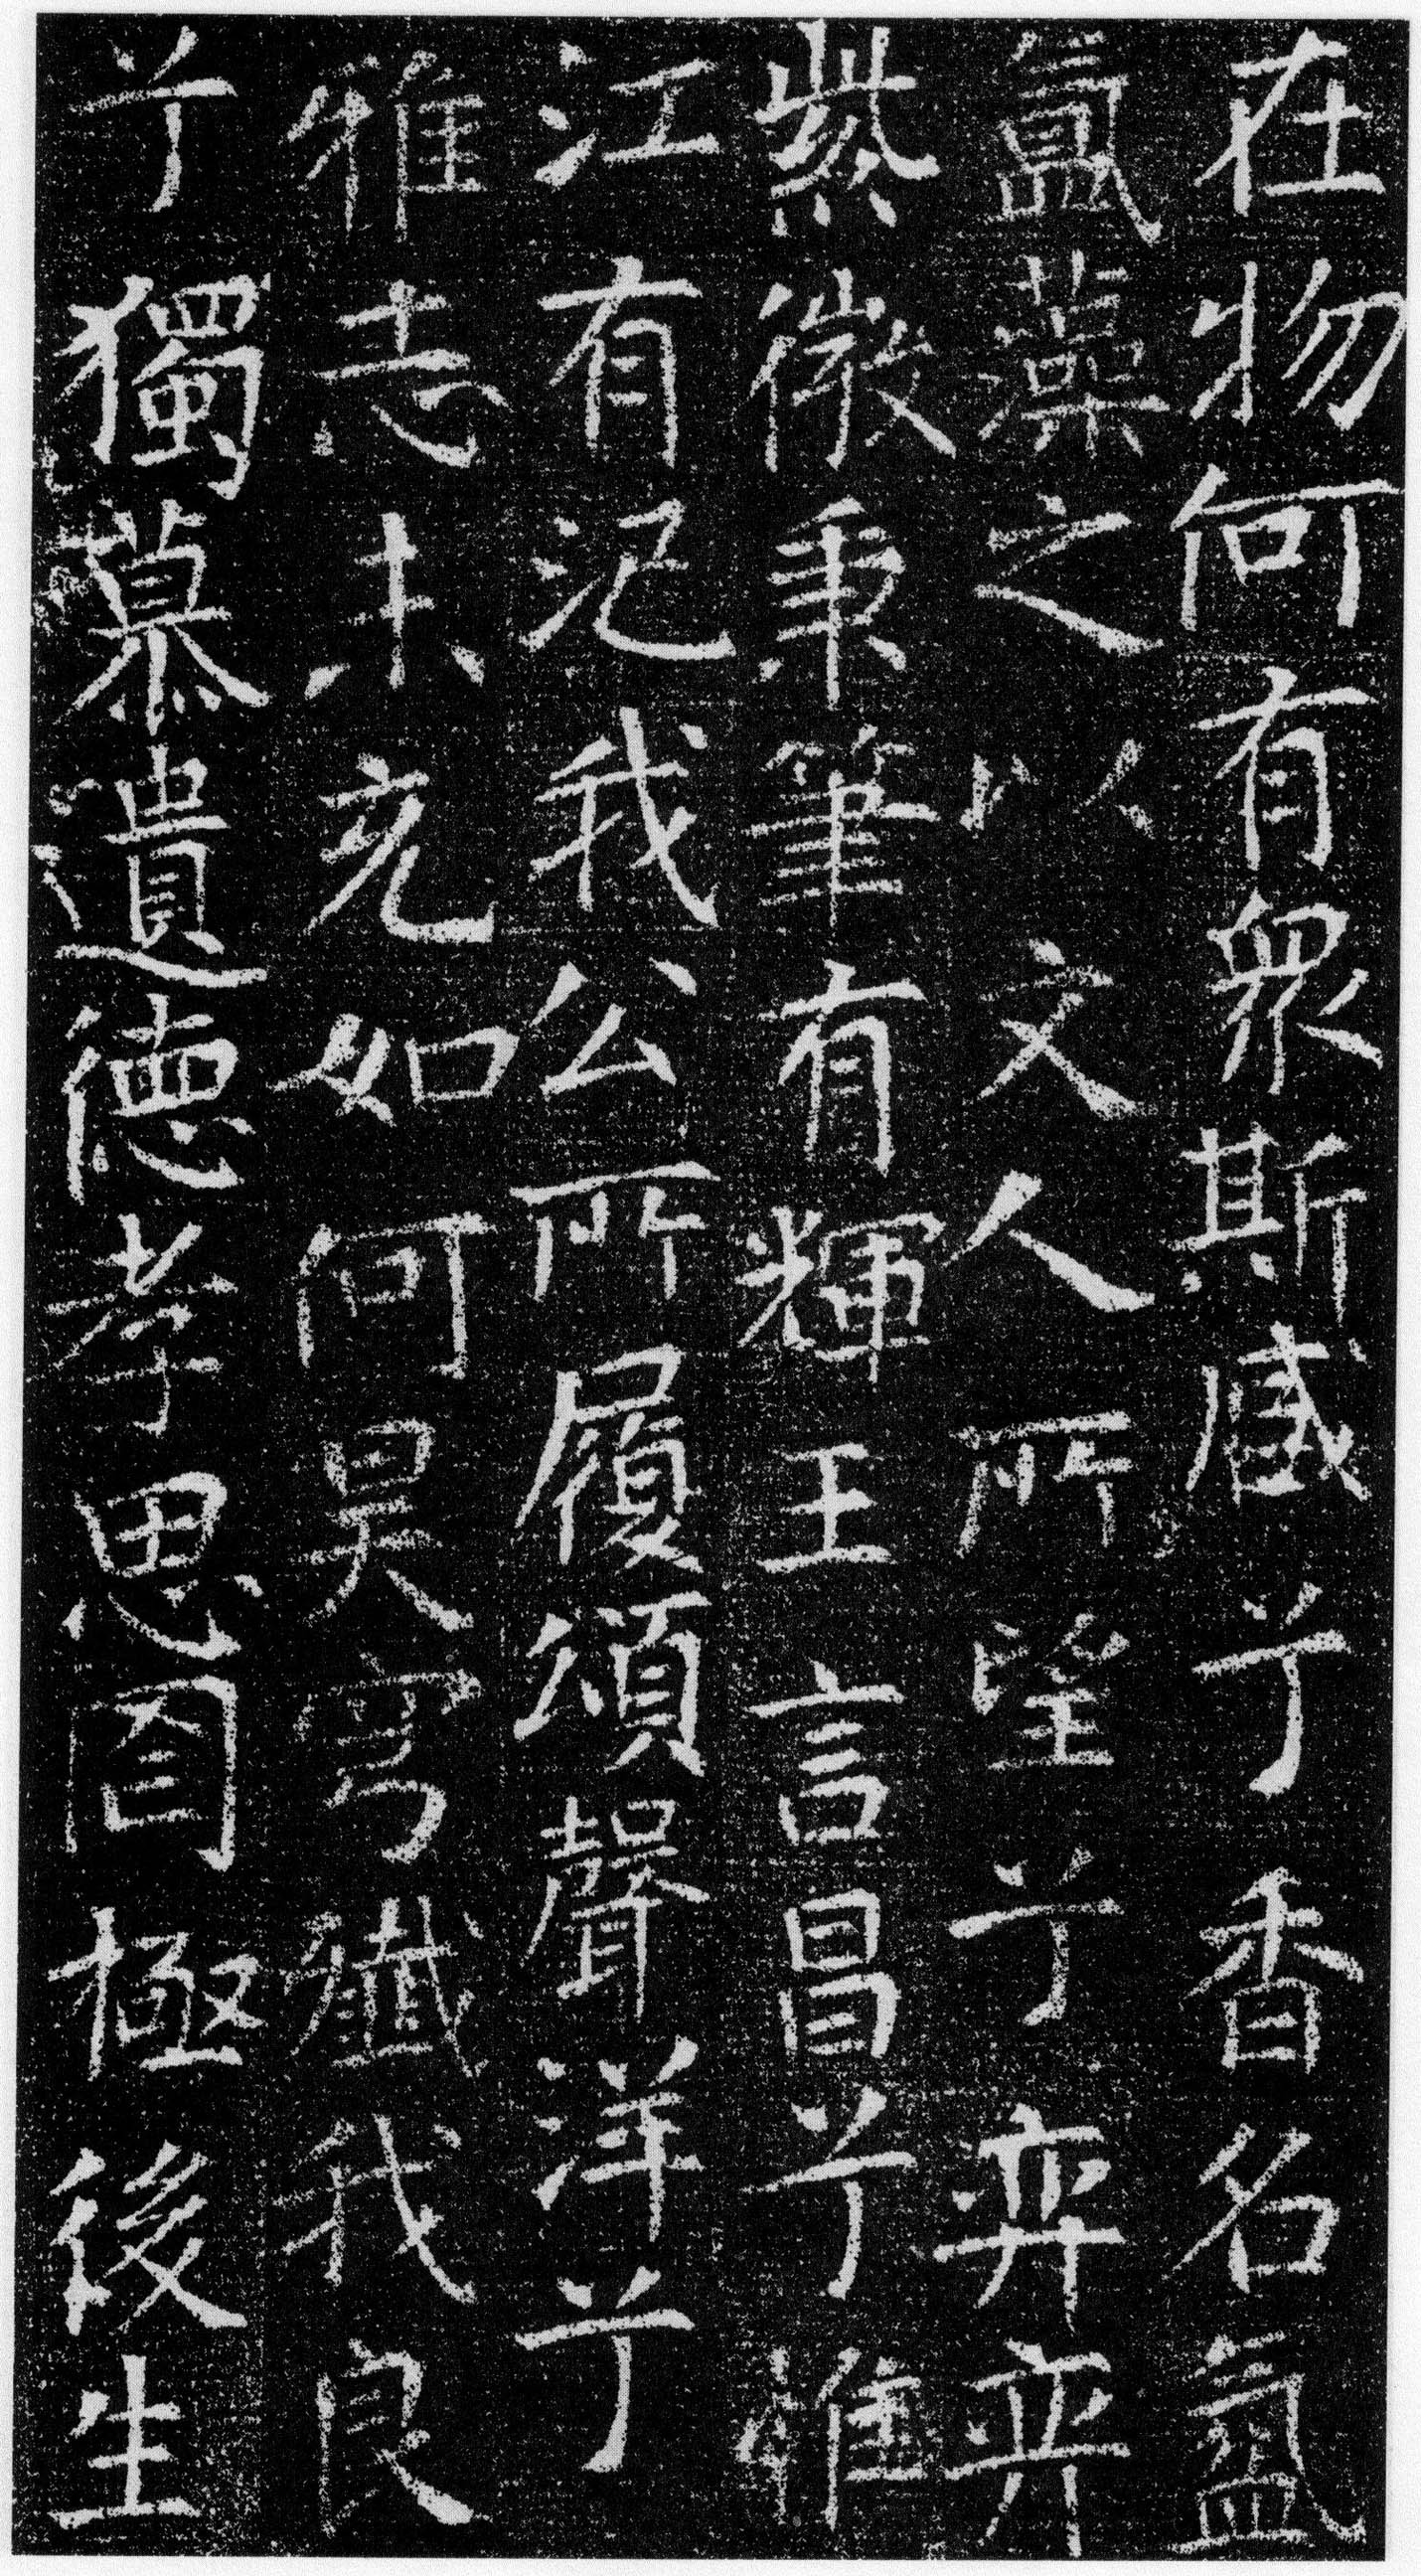 在物何有衆斯感兮香名氳
氳藻之以文人所望兮弈弈
紫微秉筆有輝王言昌兮惟
江有汜我公所履頌聲洋兮
雅志未充如何昊穹殲我良
兮獨慕遺德孝思罔極後生